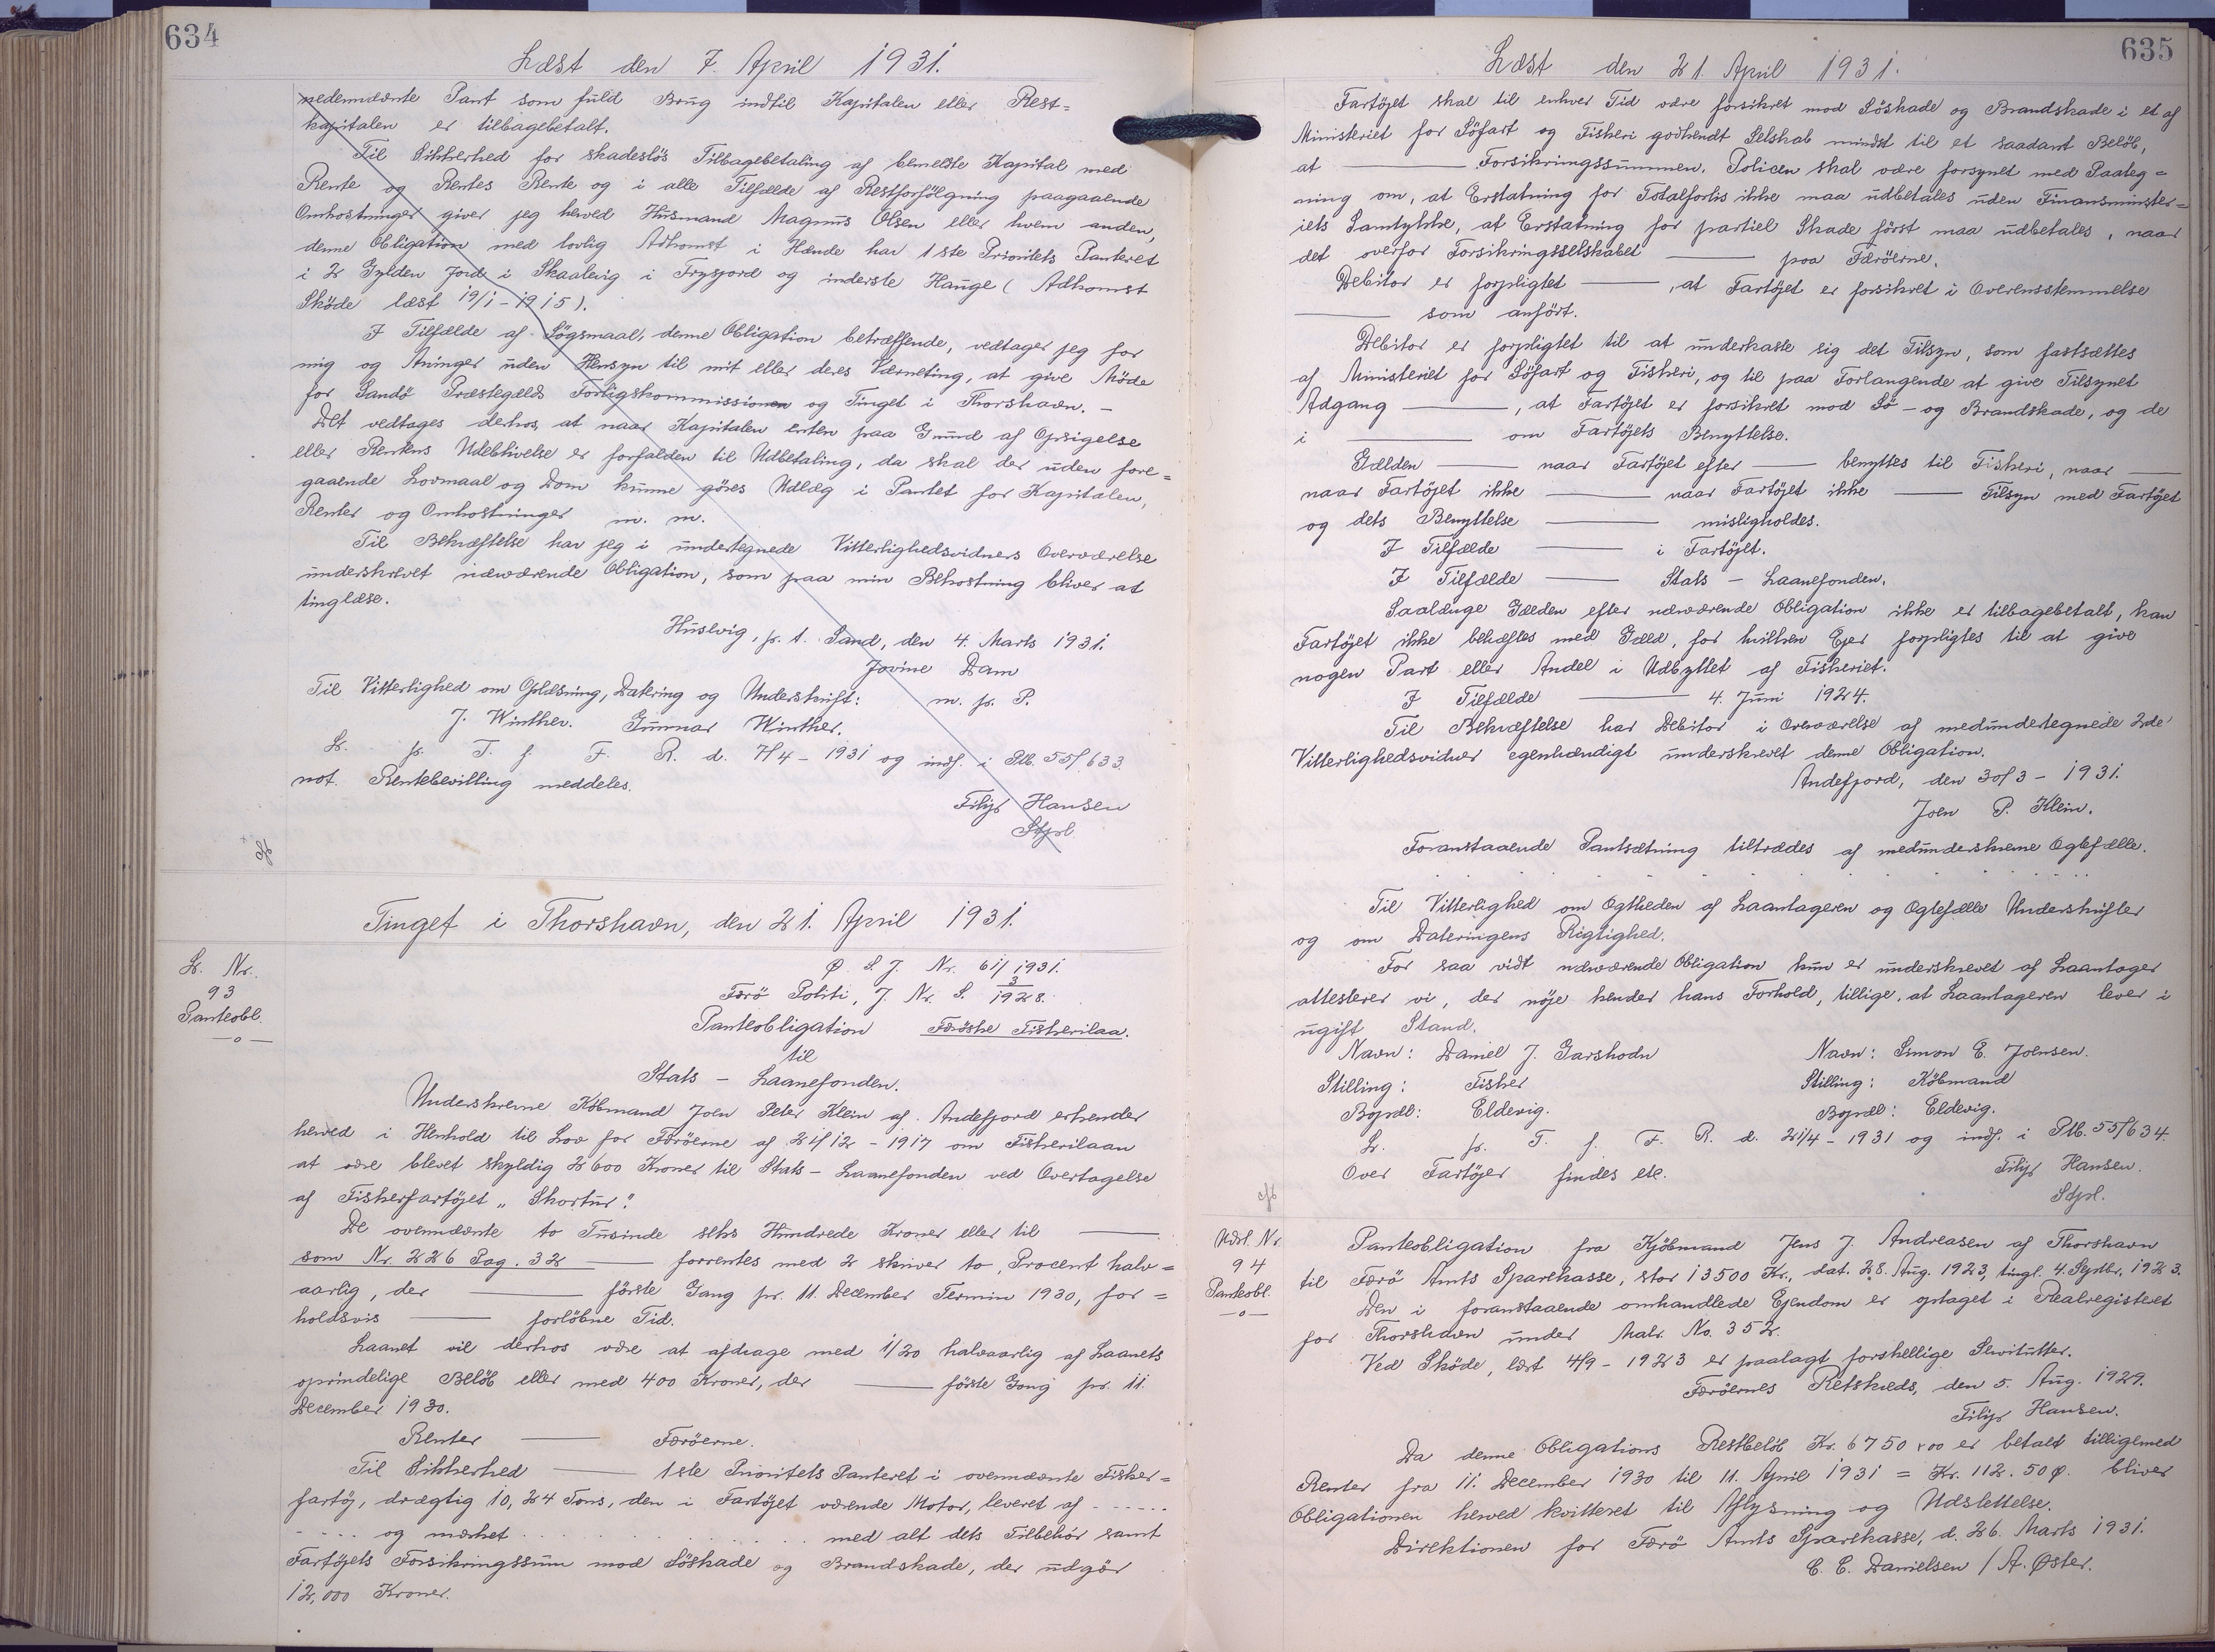 634
Læst den 7. April 1931.
nedennævnte Pant som fuld Brug indtil Kapitalen eller Rest=
kapitalen er tilbagebetalt.
Til Sikkerhed for skadesløs Tilbagebetaling af bemeldte Kapital med
Rente og Rentes Rente og i alle Tilfælde af Restforfölgning paagaaende
Omkostninger giver jeg herved Husmand Magnus Olsen eller hvem anden,
denne Obligation med lovlig Adkomst i Hænde har 1ste Prioritets Panteret
i 2 Gylden Jord i Skaalevig i Trysfjord og inderste Hauge (Adkomst
Sköde læst 19/1-1915).
I Tilfælde af Sögsmaal, denne Obligation betræffende, vedtager jeg for
mig og Arvinger uden Hensyn til mit eller deres Værneting, at give Möde
for Sandö Præstegælds Forligskommission og Tinget i Thorshavn. -
Det vedtages derhos, at naar Kapitalen enten paa Grund af Opsigelse
eller Rentens Udeblivelse er forfalden til Udbetaling, da skal der uden fore=
gaaende Lovmaal og Dom kunne göres Udlæg i Pantet for Kapitalen,
Renter og Omkostninger m. m.
Til Bekræftelse har jeg i undertegnede Vitterlighedsvidners Overværelse
underskrevet nærværende Obligation, som paa min Bekostning bliver at
tinglæse.
Húsevig, p. t. Sand, den 4. Marts 1931.
Jovine Dam
Til Vitterlighed om Oplæsning, Datering og Underskrift: m. p. P.
J. Winther. Gunnar Winther.
L. p. T. f. F. R. d. 7/4-1931 og indf. i Ptb. 55/633
not. Rentebevilling meddeles.
Filip Hansen
Stpl.
Tinget i Thorshavn, den 21. April 1931.
L. Nr.
93
Panteobl.
Ø. L. J. Nr. 61/1931.
Færö Politi, J. Nr. S. 3/1928.
Panteobligation Færöske Fiskerilaa.
til
Stats - Laanefonden.
Underskrevne Köbmand Joen Peter Klein af Andefjord erkender
herved i Henhold til Lov for Færöerne af 21/12-1917 om Fiskerilaan
at være blevet skyldig 2600 Kroner til Stats-Laanefonden ved Overtagelse
af Fiskerfartöjet "Skortur".
De ovennævnte to Tusinde seks Hundrede Kroner eller til ———
som Nr. 226 Pag. 32 ——— forrentes med 2 skriver to, Procent halv=
aarlig, der ——— förste Gang pr. 11. December Termin 1930, for=
holdsvis ——— forlöbne Tid.
Laanet vil derhos være at afdrage med 1/20 halvaarlig af Laanets
oprindelige Belöb eller med 400 Kroner, der ——— förste Gang pr. 11.
December 1930.
Renter ——— Færöerne.
Til Sikkerhed ——— 1ste Prioritets Panteret i ovennævnte Fisker=
fartöj, drægtig 10,24 Tons, den i Fartöjet værende Motor, leveret af ......
.... og mærket ............ med alt dets Tilbehör samt
Fartöjets Forsikringssum mod Söskade og Brandskade, der udgör
12,000 Kroner.
635
Læst den 21. April 1931.
Fartöjet skal til enhver Tid være forsikret mod Söskade og Brandskade i et af
Ministeriet for Söfart og Fiskeri godkendt Selskab mindst til et saadant Belöb,
at ——— Forsikringssummen. Policen skal være forsynet med Paateg=
ning om, at Erstatning for Totalforlis ikke maa udbetales uden Finansminister=
iets Samtykke, at Erstatning for partiel Skade först maa udbetales, naar
det overfor Forsikringsselskabet ——— paa Færöerne.
Debitor er forpligtet ———, at Fartöjet er forsikret i Overensstemmelse
——— som anfört.
Debitor er forpligtet til at underkaste sig det Tilsyn, som fastsættes
af Ministeriet for Söfart og Fiskeri, og til paa Forlangende at give Tilsynet
Adgang ———, at Fartöjet er forsikret mod Sö- og Brandskade, og de
i ——— om Fartöjets Benyttelse.
Gælden ——— naar Fartöjet efter ——— benyttes til Fiskeri, naar ———
naar Fartöjet ikke ——— naar Fartöjet ikke ——— Tilsyn med Fartöjet
og dets Benyttelse ——— misligholdes.
I Tilfælde ——— i Fartöjet.
I Tilfælde ——— Stats - Laanefonden.
Saalænge Gælden efter nærværende Obligation ikke er tilbagebetalt, kan
Fartöjet ikke behæftes med Gæld, for hvilken Ejer forpligtes til at give
nogen Part eller Andel i Udbyttet af Fiskeriet.
I Tilfælde ——— 4. Juni 1924.
Til Bekræftelse har Debitor i Overværelse af medundertegnede 2de
Vitterlighedsvidner egenhændigt underskrevet denne Obligation.
Andefjord, den 30/3-1931.
Joen P. Klein.
Foranstaaende Pantsætning tiltrædes af medunderskrevne Ægtefælle.
Til Vitterlighed om Ægtheden af Laantageren og Ægtefælle Underskrifter
og om Dateringens Rigtighed.
For saa vidt nærværende Obligation kun er underskrevet af Laantager
attesterer vi, der nöje kender hans Forhold, tillige, at Laantageren lever i
ugift Stand.
Navn: Daniel J. Garshodn Navn: Simon E. Joensen.
Stilling: Fisker Stilling: Köbmand
Bopæl: Eldevig. Bopæl: Eldevig.
L. p. T. f. F. R. d. 21/4-1931 og indf. i Ptb. 55/634.
Over Fartöjer findes etc. Filip Hansen.
Stpl.
Udsl. Nr.
94
Panteobl.
Panteobligation fra Kjöbmand Jens J. Andreasen af Thorshavn
til Færö Amts Sparekasse, stor 13500 Kr., dat. 28. Aug. 1923, tingl. 4. Septbr. 1923.
Den i foranstaaende omhandlede Ejendom er optaget i Realregisteret
for Thorshavn under Matr. No. 352.
Ved Sköde, læst 4/9-1923 er paalagt forskellige Servitutter.
Færöernes Retskreds, den 5. Aug. 1929.
Filip Hansen.
Da denne Obligations Restbelöb Kr. 6750,00 er betalt tilligemed
Renter fra 11. December 1930 til 11. April 1931 = Kr. 112.50 Ø. bliver
Obligationen herved kvitteret til Aflysning og Udslettelse.
Direktionen for Færö Amts Sparekasse, d. 26. Marts 1931.
C. C. Danielsen / A. Øster.